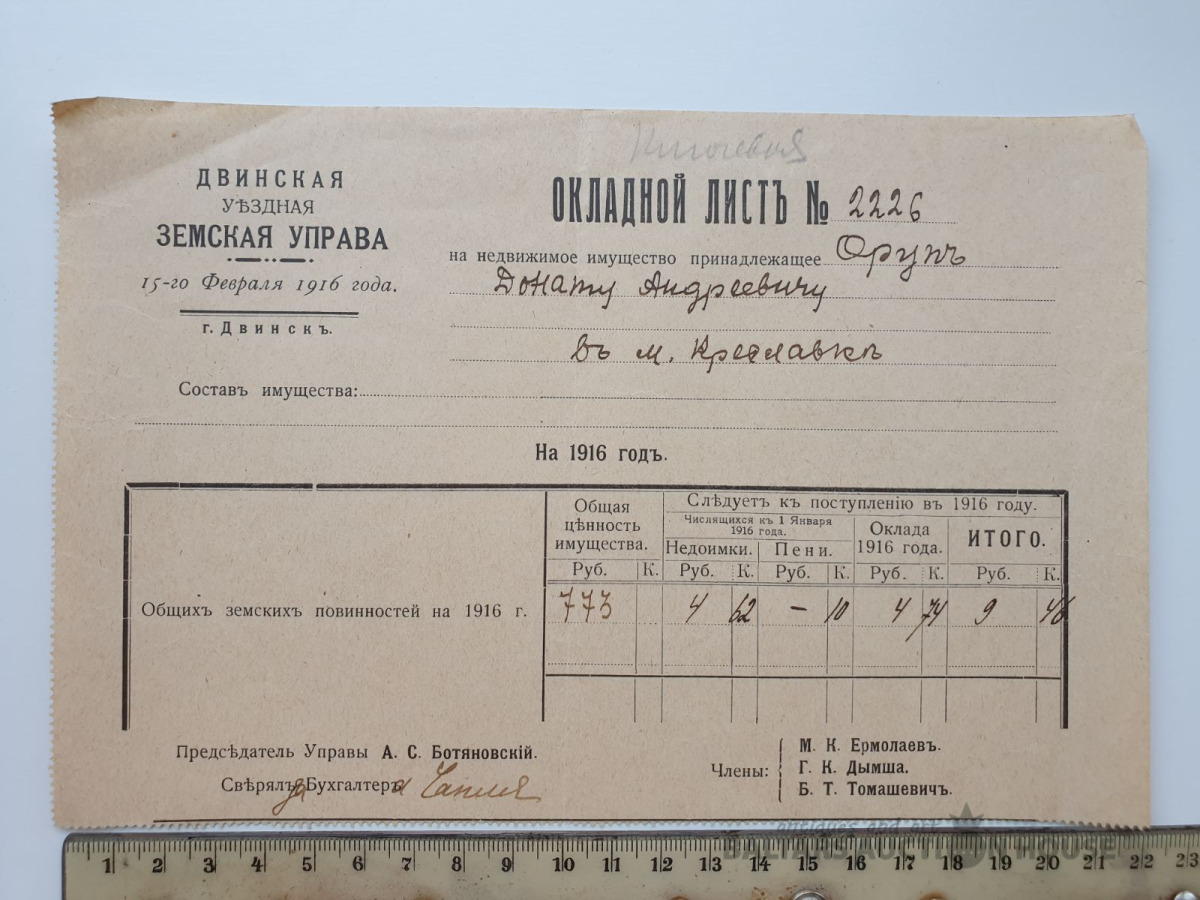 ДВИНСКАЯ
УѢЗДНАЯ
ЗЕМСКАЯ УПРАВА
15-го Февраля 1916 года.
г. Двинскъ.
ОКЛАДНОЙ ЛИСТЪ № 2226
на недвижимое имущество принадлежащее Орупъ
Донату Андреевичу
въ м. Креславкѣ
Составъ имущества:
На 1916 годъ.
Общая цѣнность имущества.
Слѣдуетъ къ поступленію въ 1916 году.
Числящихся къ 1 Января 1916 года.
Недоимки. Пени.
Оклада 1916 года.
ИТОГО.
Руб. К. Руб. К. Руб. К. Руб. К. Руб. К.
Общихъ земскихъ повинностей на 1916 г. 773 4 62 – 10 4 74 9 46
Предсѣдатель Управы А. С. Ботяновскій.
Свѣрялъ за Бухгалтера
Члены:
М. К. Ермолаевъ.
Г. К. Дымша.
Б. Т. Томашевичъ.
antiques and art
BALTARS AUCTION HOUSE
1 2 3 4 5 6 7 8 9 10 11 12 13 14 15 16 17 18 19 20 21 22 23